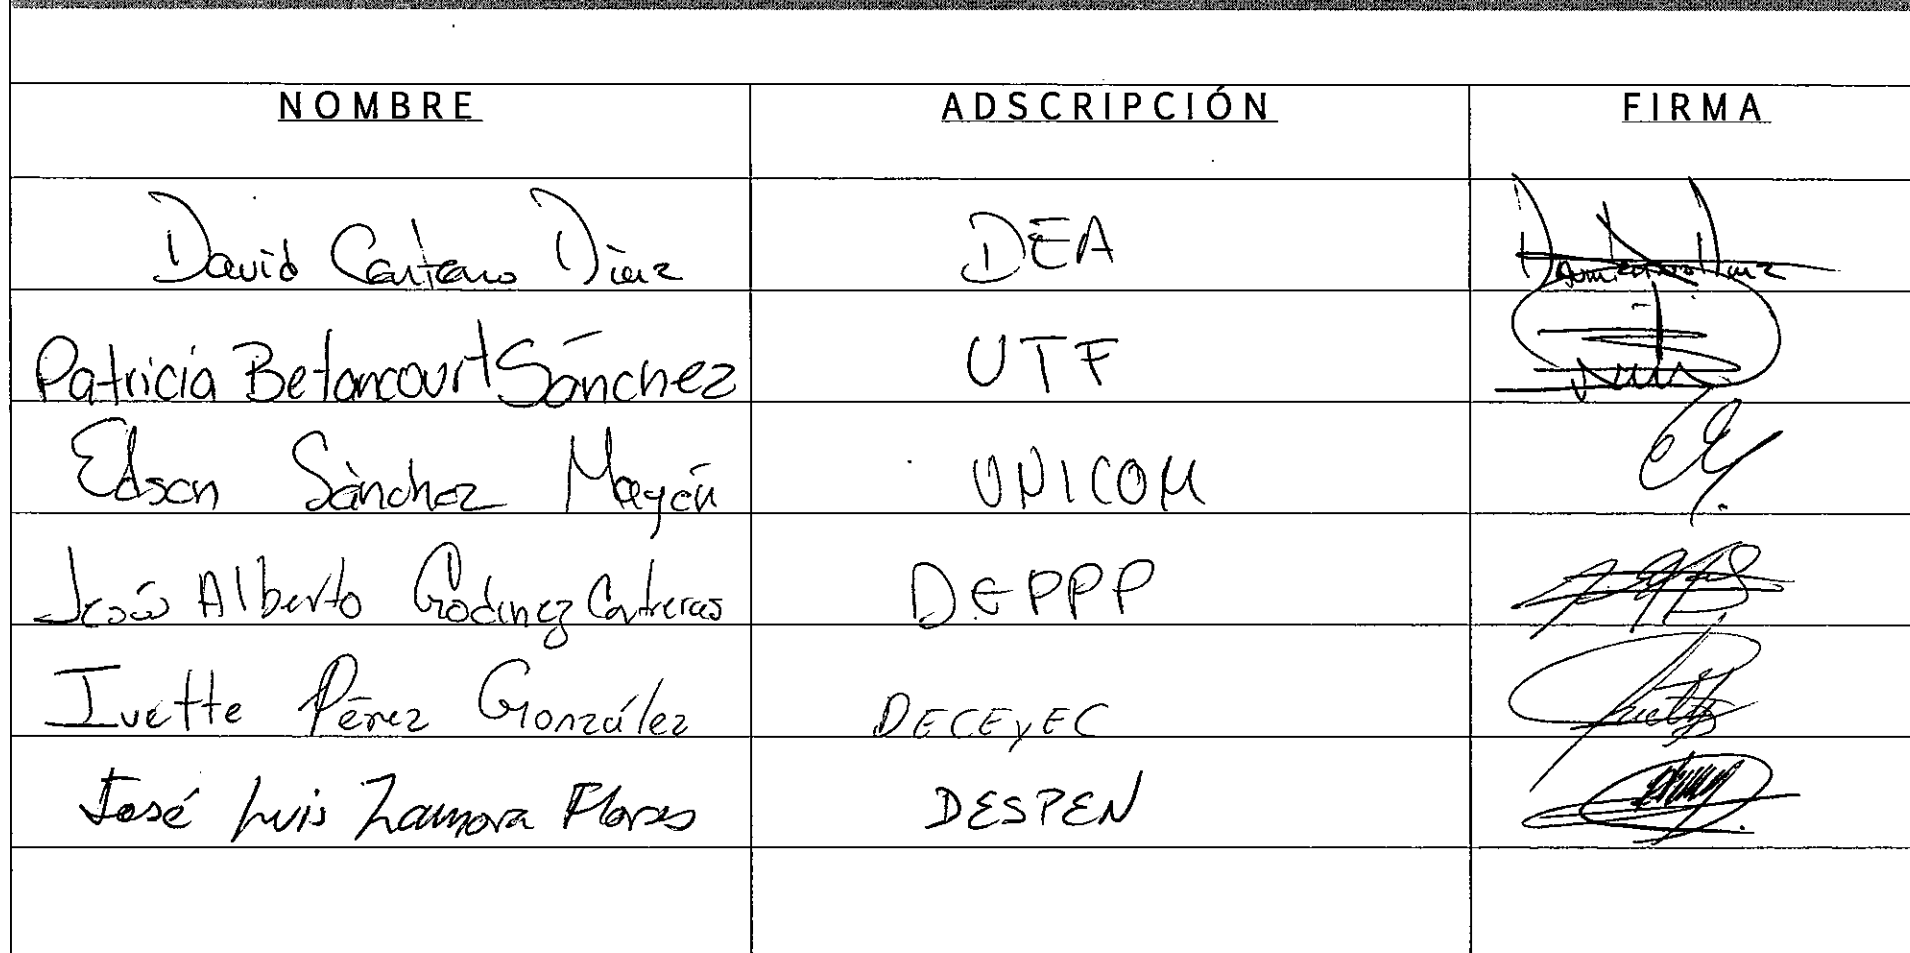 NOMBRE ADSCRIPCIÓN FIRMA
David Centeno Díaz DEA
Patricia Betancourt Sánchez UTF
Edson Sánchez Mayén UNICOM
Jesús Alberto Godínez Contreras DEPPP
Ivette Pérez González DECEyEC
José Luis Zamora Flores DESPEN